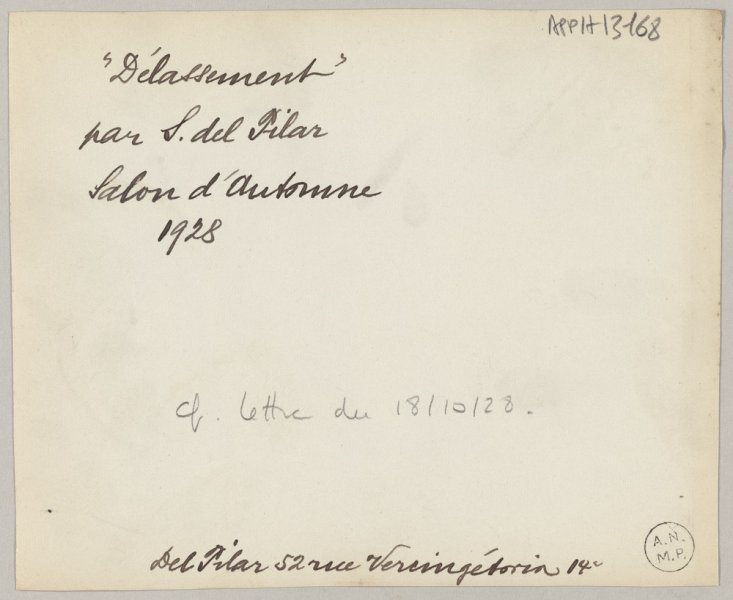 APPH13468
"Délassement"
par S. del Pilar
Salon d'Automne
1928
cf. lettre du 18/10/28.
Del Pilar 52 rue Vercingétorix 14e
A.N.
M.P.